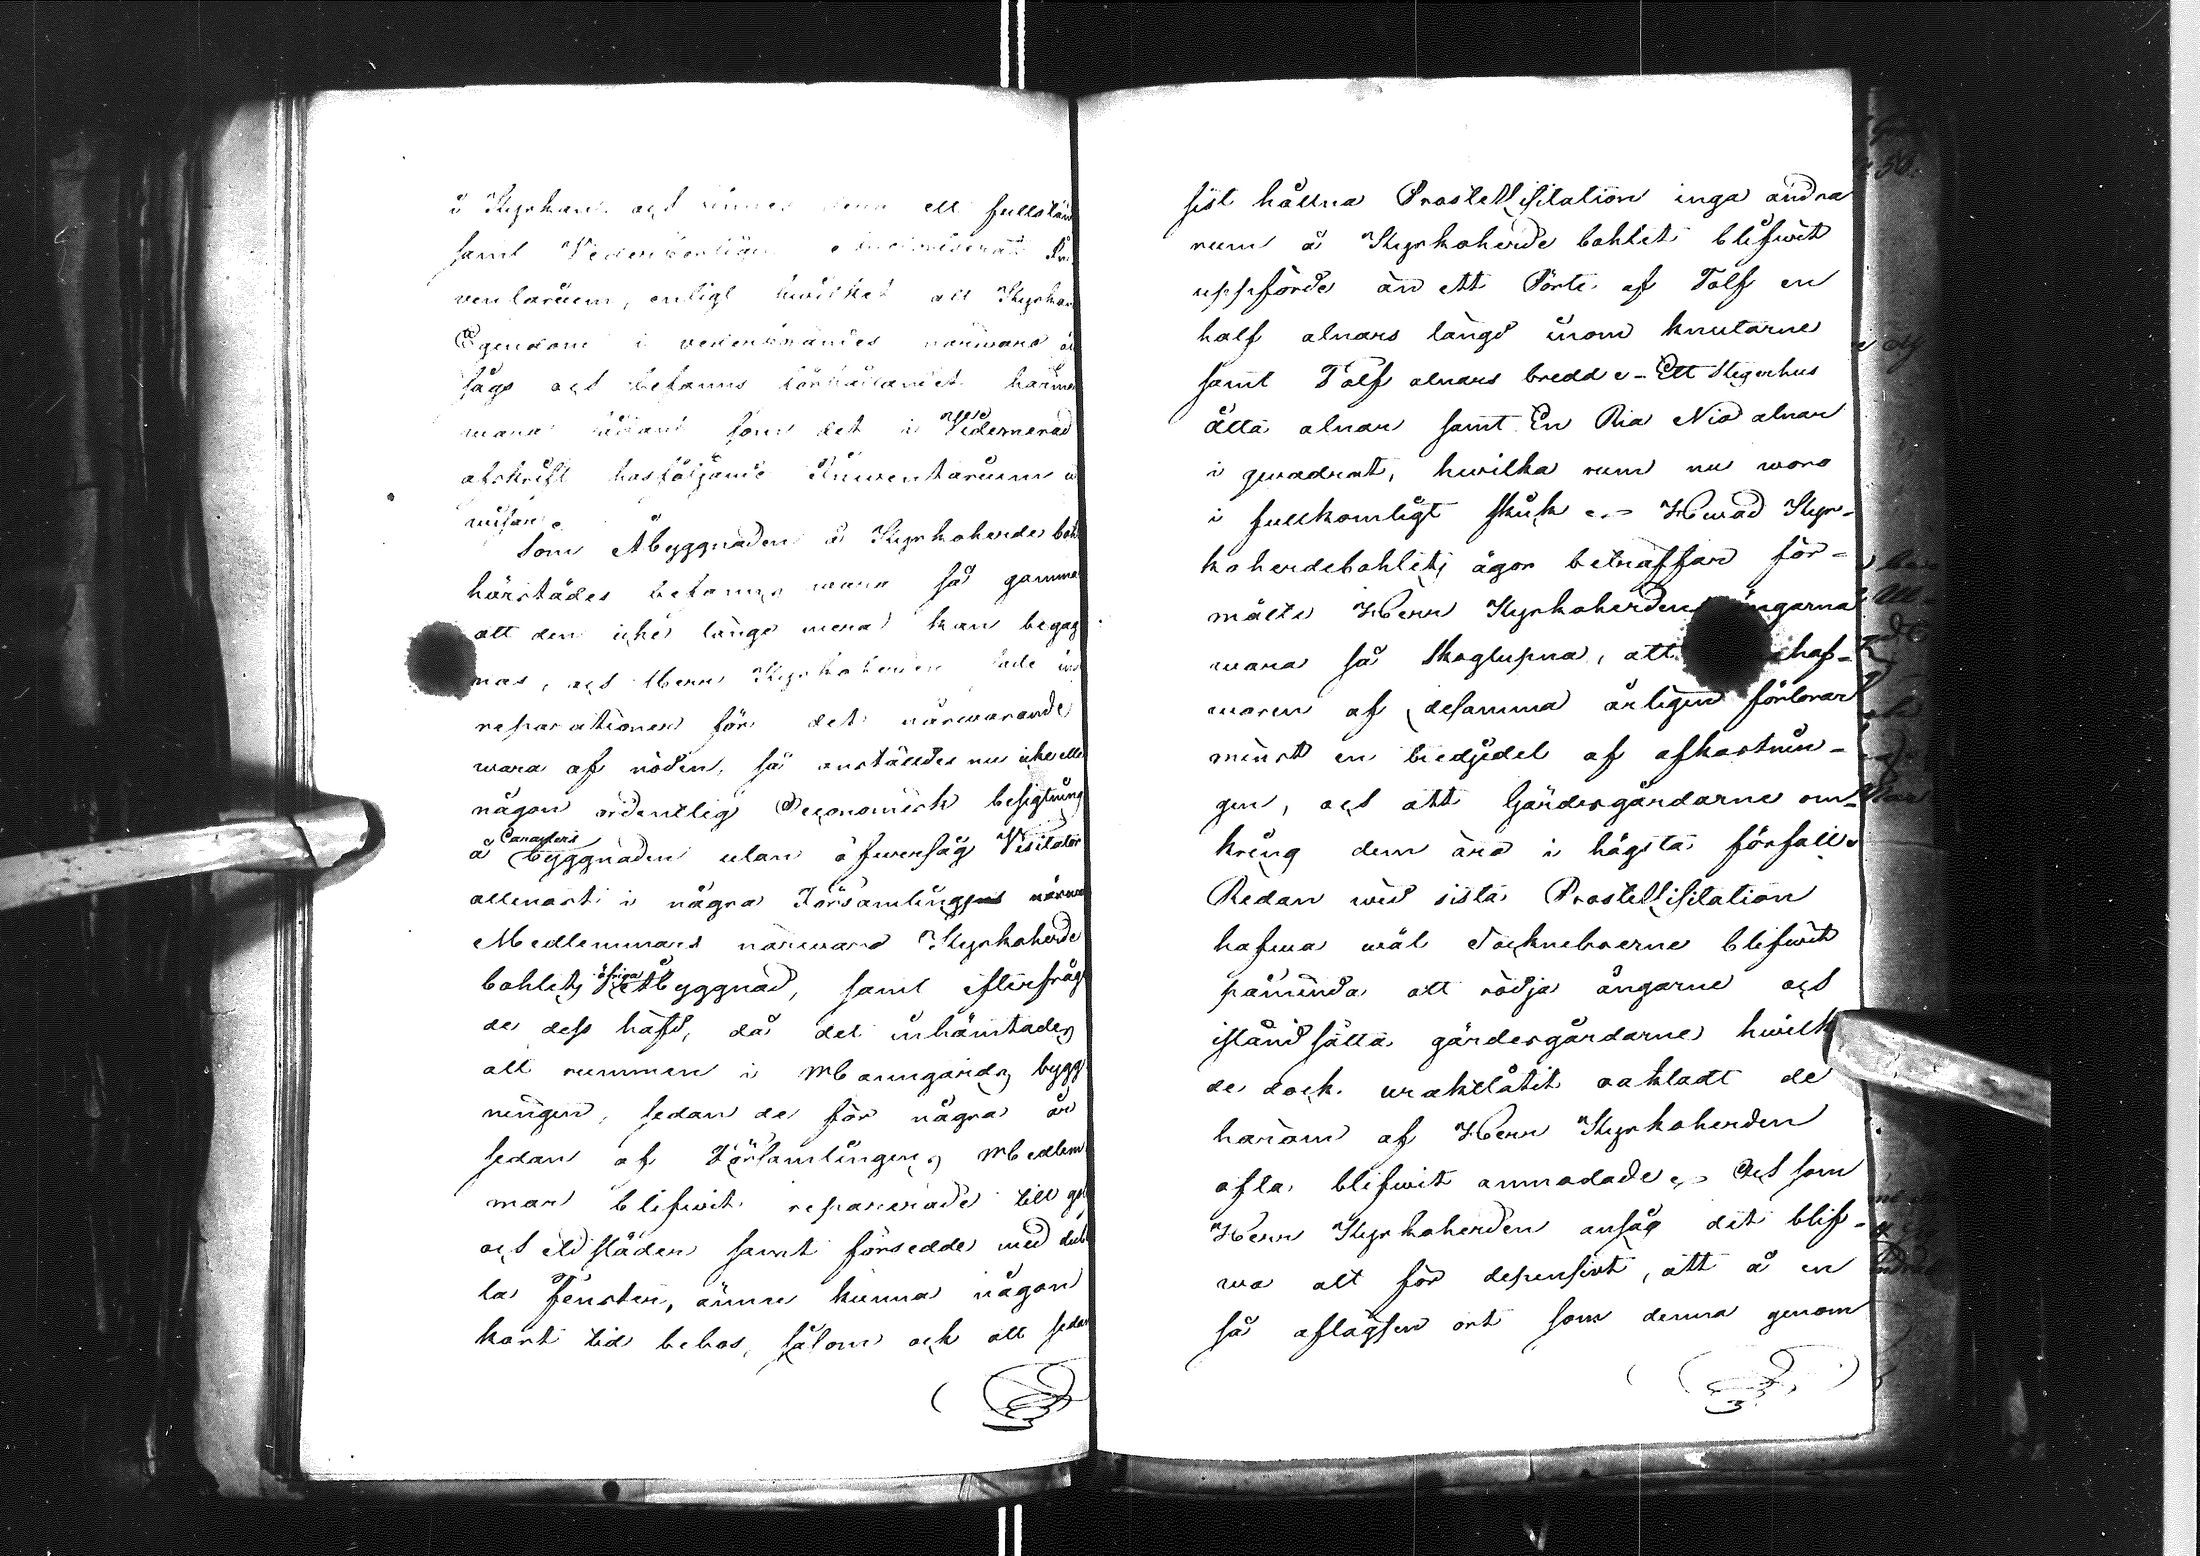 å Kyrkan och finnes ett fullstän
samt Vederbörligen
ventarium, enligt hwilket all Kyrkans
Egendom i vederbörandes närwaro
sågs och befanns förhållandet härme
wara sådant som det i Videmerad
afskrift hosföljande Inwentarium
wisar.
Som Åbyggnaden å Kyrkoherde boh
härstädes befanns wara så gamma
att den icke länge mera kan begag
nas, och Herr Kyrkoherden
reparationer för det närwarande
wara af nöden, så anstäldes nu icke elle
någon ordentelig Oeconomisk besigtning
å byggnaden utan öfwersåg Visitator
allenast i några Församlingens närwa
Medlemmars närwaro Kyrkoherde
bohlets öfriga Åbyggnad, samt efterfråg
de dess häfd, då det inhämtades
att rummen i Manngårds bygg
ningen, sedan de för några år
sedan af Församlingens Medlem
mar blifwit reparerade till
och eldstäder samt försedde med dub
la Fenster, ännu kunna någon
kort tid bebos, såsom ock att sedan
sist hållna ProsteVisitation inga andra
rum å Kyrkoherde bohlet blifwit
uppförde än ett Pörte af Tolf en
half alnars längd inom knutarne
samt Tolf alnars bredd - Ett
åtta alnar samt En Ria Nio alnar
i qwadrat, hwilka rum nu woro
i fullkomligt skick Hwad Kyr-
koherdebohlets ägor beträffar för-
mälte Herr Kyrkoherden ängarna
wara så skoglupna, att haf-
waren af desamma årligen förlorar
minst en tredjedel af afkastnin-
gen, och att Gärdesgårdarne om-
kring dem äro i högsta förfall.
Redan wid sista ProsteVisitation
hafwa wäl Socknеboerne blifwit
påminda att rödja ängarne och
iståndsätta gärdesgårdarne hwilk
de dock uraktlåtit oaktadt de
härom af Herr Kyrkoherden
ofta blifwit anmodade Och som
Herr Kyrkoherden ansåg det blif-
wa alt för depensivt, att å en
så aflägsen ort som denna genom